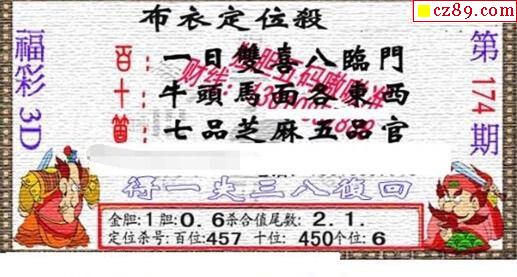 cz89.com
布衣定位殺
福彩3D
第174期
百: 一日雙喜八臨門
十: 牛頭馬面各東西
箇: 七品芝麻五品官
得一史三八復回
金胆:1胆:0.6杀合值尾数:2.1.
定位杀号:百位:457 十位:450个位:6